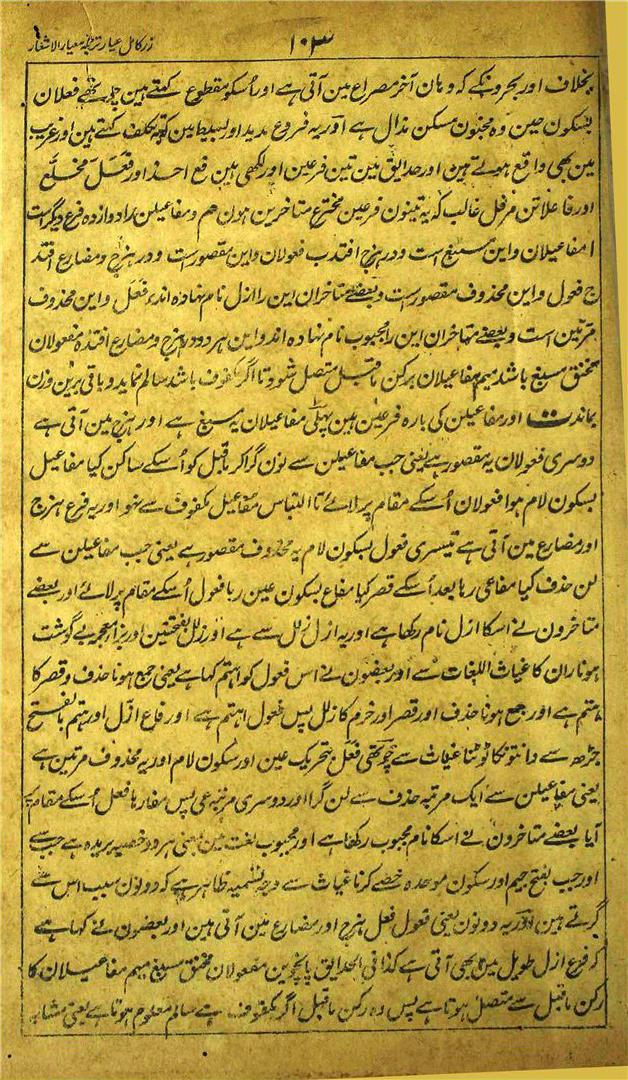 زر کامل عیار ترجمہ معیار الاشعار ۱۰۳
بخلاف اور بحرونکے کہ وہان آخر مصراع مین آتی ہے اور اُسکو مقطوع کہتے ہین چھٹے فعلان
بسکون عین وہ مخبون مسکن مذال ہے اور یہ فروع مدید اور بسیط مین کہتے ہین اور غریب
مین بھی واقع ہوتے ہین اور حدایق مین تین فرعین اور لکھی ہین فع احذ اور فعل مخلع
اور فاعلاتن مرفل غالب کہ یہ تینون فرعین مخترع متاخرین ہون هم و مفاعیلن را دوازده فرع دیگر است
ا مفاعیلان و این مسبغ است و در ہزج افتد ب فعولان و این مقصور است و در ہزج و مضارع افتد
ج فعول و این محذوف مقصور است و بعضے متاخران این را ازل نام نهاده اند ء فعل و این محذوف
مرتین است و بعضے متاخران این را مجبوب نام نهاده اند و این هر دو در ہزج و مضارع افتد ه مفعولان
مخنق مسبغ باشد میم مفاعیلان برکن ماقبل متصل شود تا اگر مکفوف باشد سالم نماید و باقی برین وزن
بماند ت اور مفاعیلن کی بارہ فرعین ہین پہلی مفاعیلان یہ مسبغ ہے اور ہزج مین آتی ہے
دوسری فعولان یہ مقصور ہے یعنی جب مفاعیلن سے نون گرا کر ماقبل کو اُسکے ساکن کیا مفاعیل
بسکون لام ہوا فعولان اُسکے مقام پر لائے تا التباس مفاعیل مکفوف سے نہو اور یہ فرع ہزج
اور مضارع مین آتی ہے تیسری فعول بسکون لام یہ محذوف مقصور ہے یعنی جب مفاعیلن سے
لن حذف کیا مفاعی رہا بعد اُسکے قصر کیا مفاع بسکون عین رہا فعول اُسکے مقام پر لائے اور بعضے
متاخرون نے اسکا ازل نام رکھا ہے اور یہ ازل زلل سے ہے اور زلل بفتحتین اور بزاے معجمہ بے گوشت
ہونا ران کا غیاث اللغات سے اور بعضون نے اس فعول کو اہتم کہا ہے یعنی جمع ہونا حذف و قصر کا
ہتم ہے اور جمع ہونا حذف اور قصر اور خرم کا زلل پس فعول اہتم ہے اور فاع ازل اور ہتم بالفتح
جڑھ سے دانتونکا ٹوٹنا غیاث سے چوتھی فعل بتحریک عین اور سکون لام اور یہ محذوف مرتین ہے
یعنی مفاعیلن سے ایک مرتبہ حذف سے لن گرا اور دوسری مرتبہ عی پس مفا رہا فعل اُسکے مقام پر
آیا بعضے متاخرون نے اسکا نام مجبوب رکھا ہے اور مجبوب لغت مین بمعنی ہر دو خصیہ بریدہ ہے جب سے
اور جب بفتح جیم اور سکون موحدہ خصے کرنا غیاث سے وجہ تسمیہ ظاہر ہے کہ دونون سبب اس سے
گرتے ہین اور یہ دونون یعنی فعول فعل ہزج اور مضارع مین آتی ہین اور بعضون نے کہا ہے
کہ فرع ازل طویل مین بھی آتی ہے کذا فی الحدایق پانچوین مفعولان مخنق مسبغ میم مفاعیلان کا
رکن ماقبل سے متصل ہوتا ہے پس وہ رکن ماقبل اگر مکفوف ہے سالم معلوم ہوتا ہے یعنی مشابہ